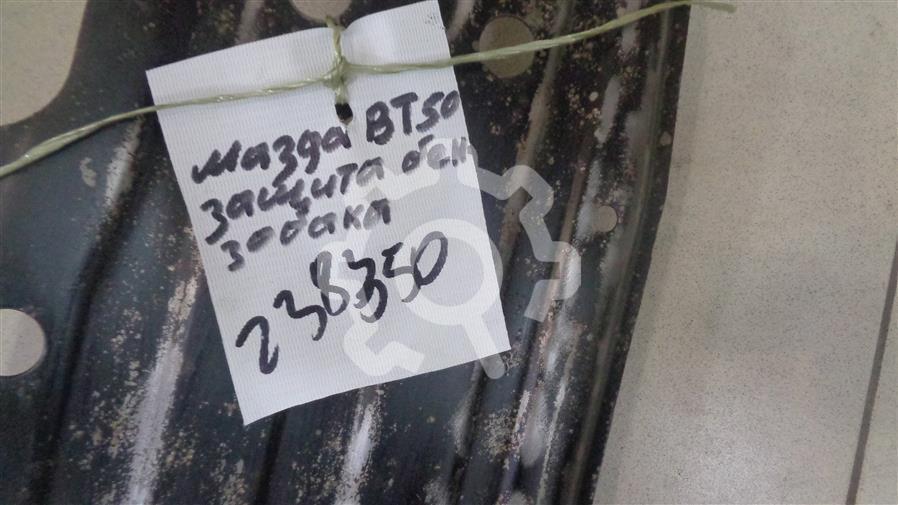 мазда BT50
защита бен-
зобака
238350